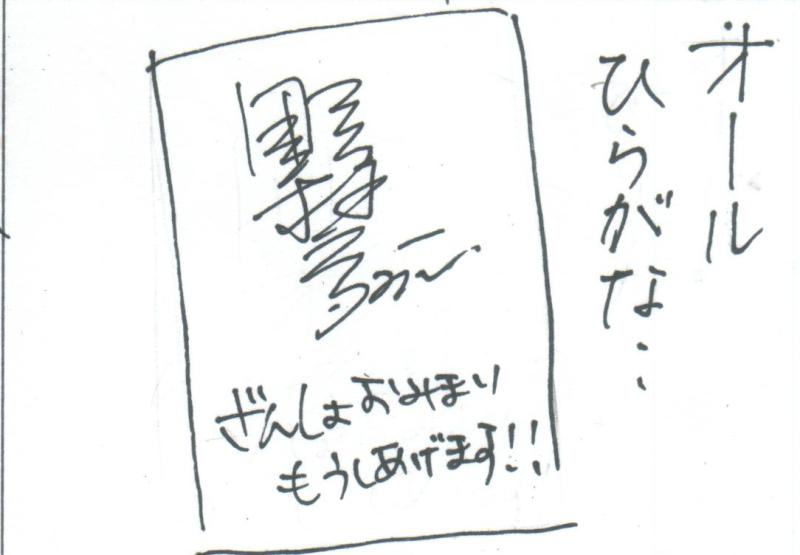 オール
ひらがな‥
ざんしょおみまい
もうしあげます!!